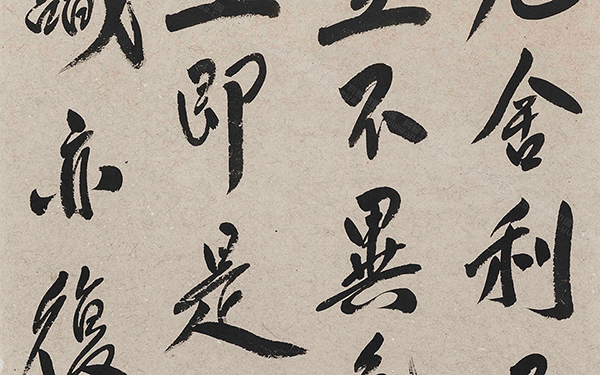 舍利
不異
即是
識亦復